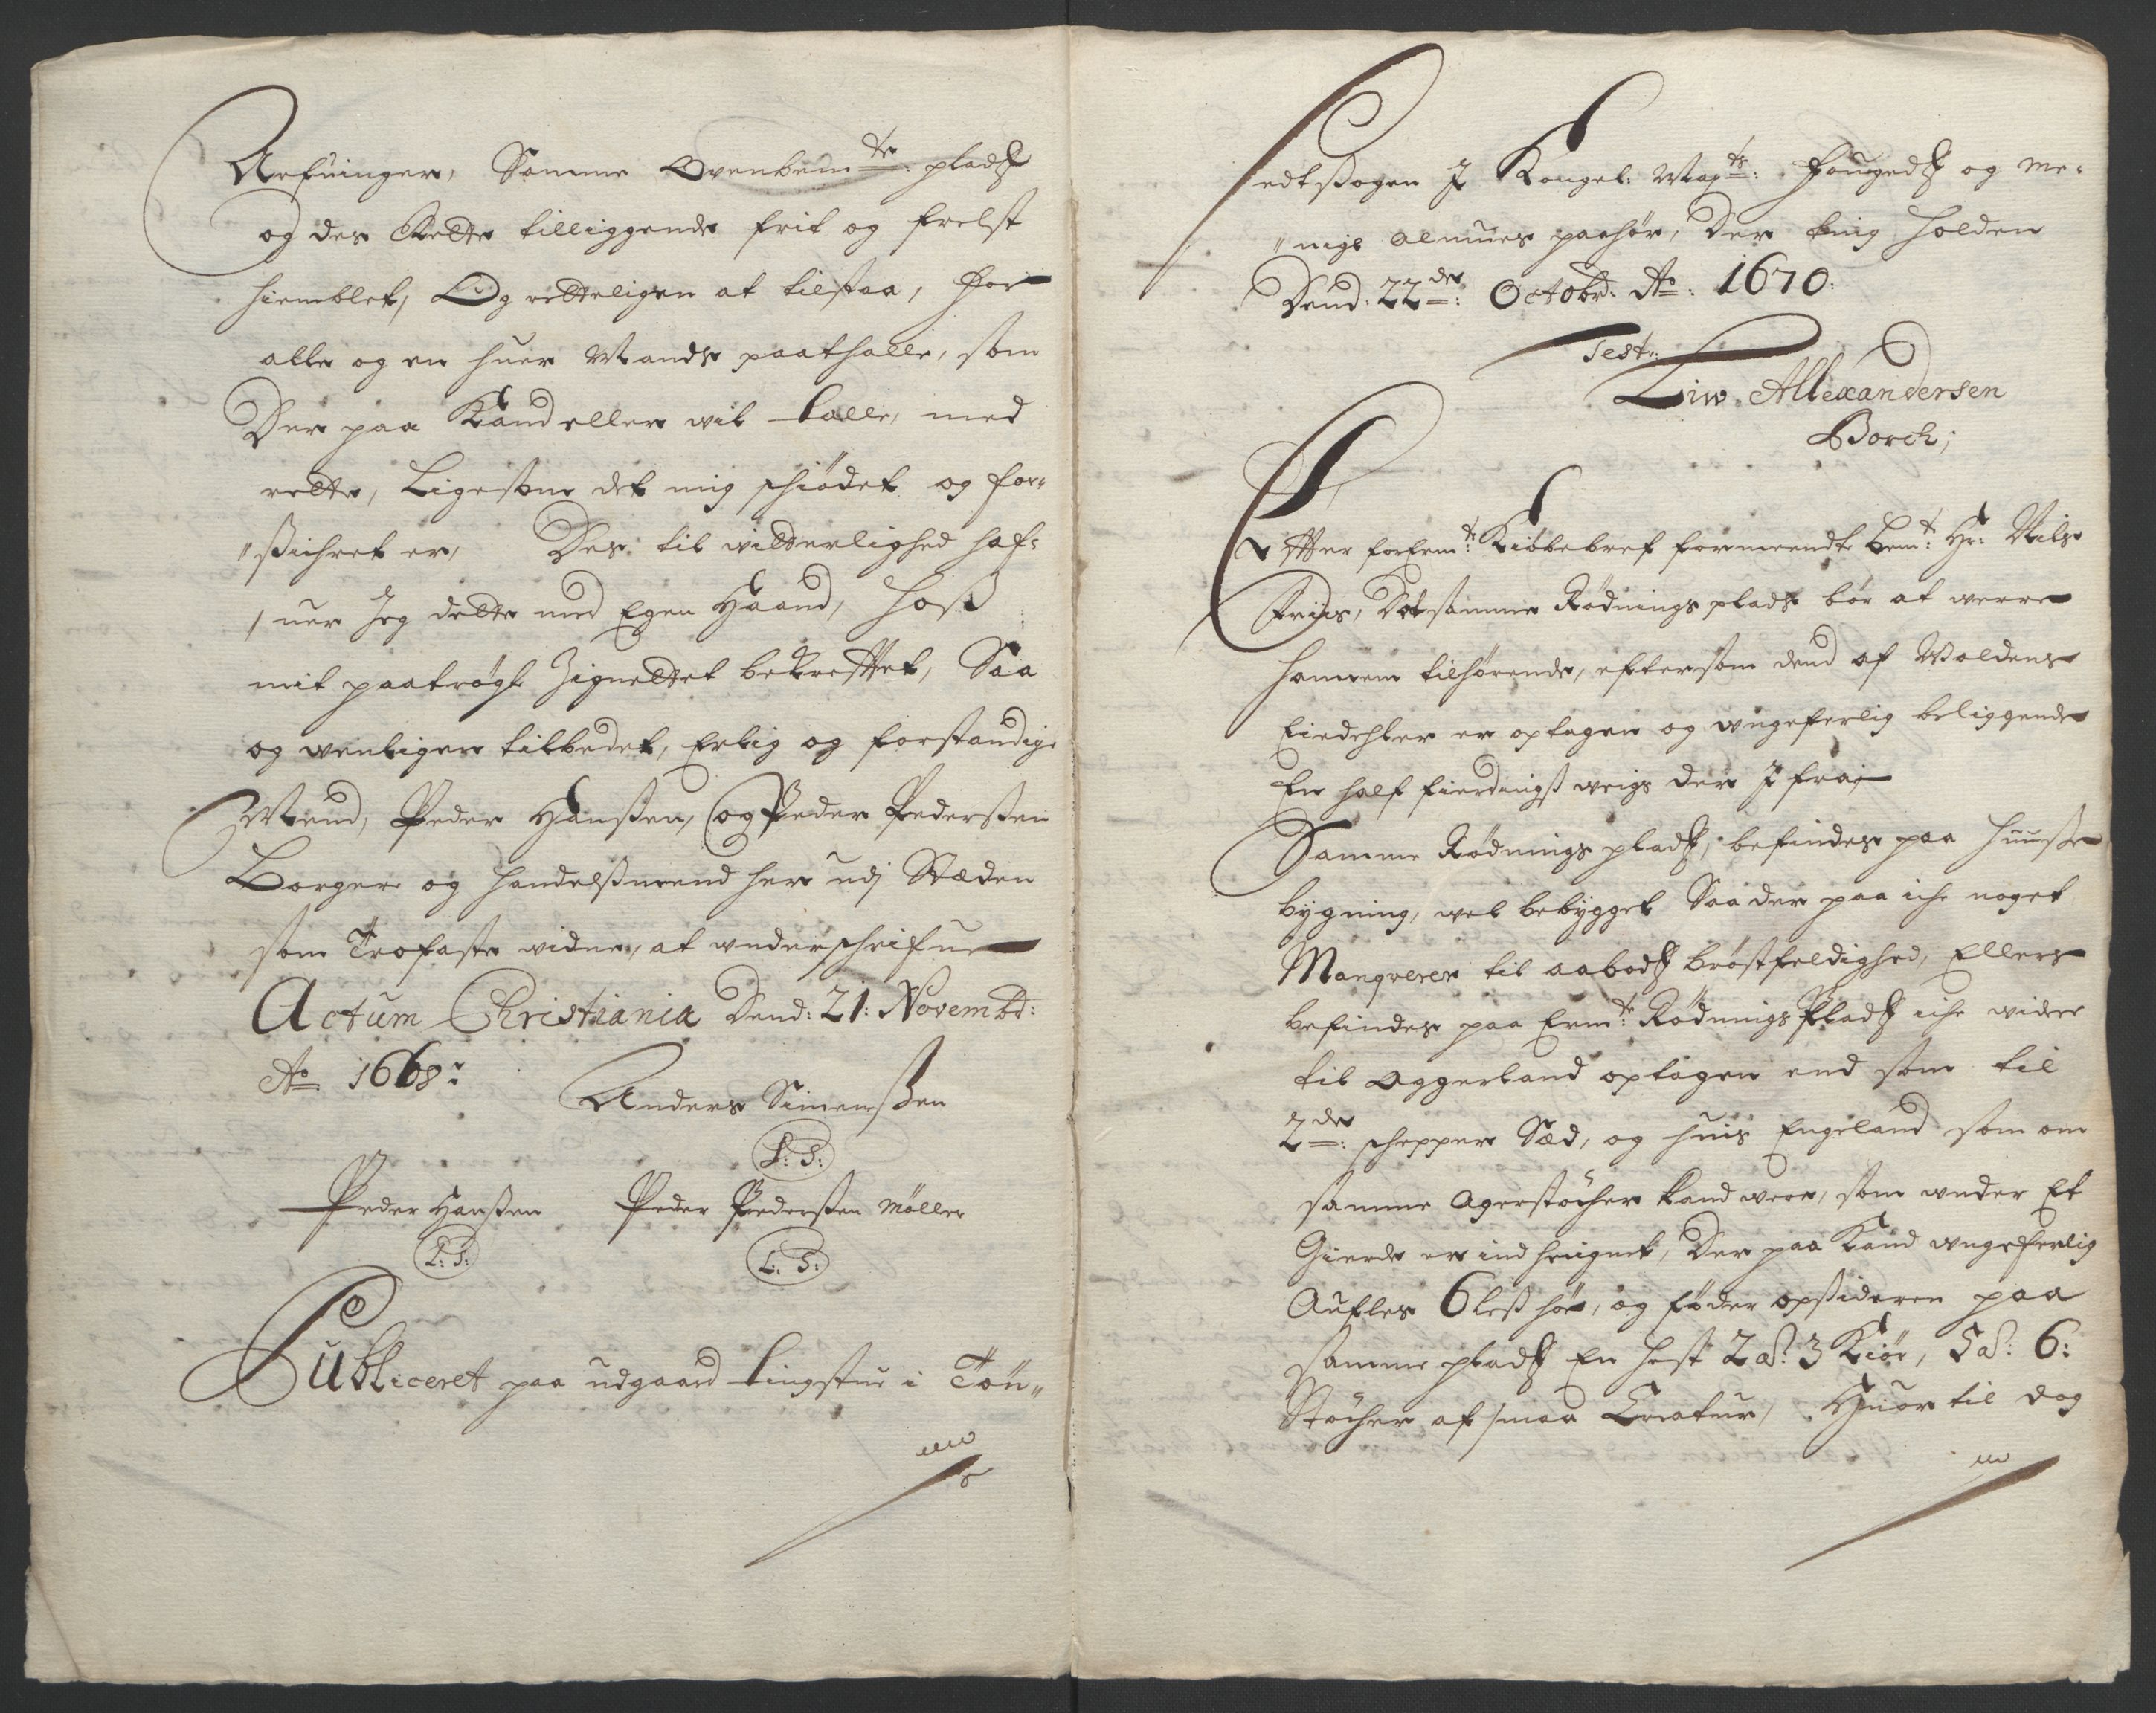 Arfuinger, Samme Ovenbemte: pladtz
og des Rette tilliggende frit og frelst
hiemblet, Og retteligen at tilstaa, for
alle og en huer Mands paathalle, som
Der paa Kand eller vil talle, med
rette, Ligesom det mig schiödet og for„
„sichret er, Des til vitterlighed haf„
uer Jeg dette med Egen Haand, hoß
mit paatrögt Zignettet bekrefftet, Saa
og venligen tilbedet, Erlig og forstandige
Mend, Peder Hanßen, og Peder Pederßen
Borgere og handelßmend her udj Stæden
som Trofaste vidne, at underschrifue
Actum Christiania Dend: 21: Novembd:
Ao 1668:
Anders Simenßen
L: S:
Peder Hanßen Peder Pederßen Möller
L: S: L: S:
Publiceret paa udgaard tingstue i Tön„
edtßogen J Kongel: Maytz: fougedtz og me„
„nige Almues paahör, Der ting holden
Dend: 22de: Octobr: Ao: 1670:
Test:
Liw Allexandersen
Borch;
Effter forschrefne Kiöbebref formeendte bemte: Hr: Nils
Friis, Det samme Rödnings plads bör at verre
hannem tilhörende, eftersom dend af Woldens
Eiedehler er optagen og ungeferlig beliggende
En half fierdingß veigs der J fra;
Samme Rödnings pladtz, befindes paa huuße
bygning, vel bebygget Saa der paa iche noget
Manqverer til aabodtz bröstfeldighed, Ellers
befindes paa Ermte: Rödnings Pladtz iche videre
til Aggerland optagen end som til
2de: schepper Sæd, og huis Engeland som om
samme Agerstöcher kand vere, som under Et
Gierde er indheignet, Der paa Kand ungeferlig
Aufles 6 leß höe, og föder opsideren paa
samme pladtz En hest 2 a: 3 Kiör, 5 a: 6:
Stöcher af smaa Creatur, Huor til dog